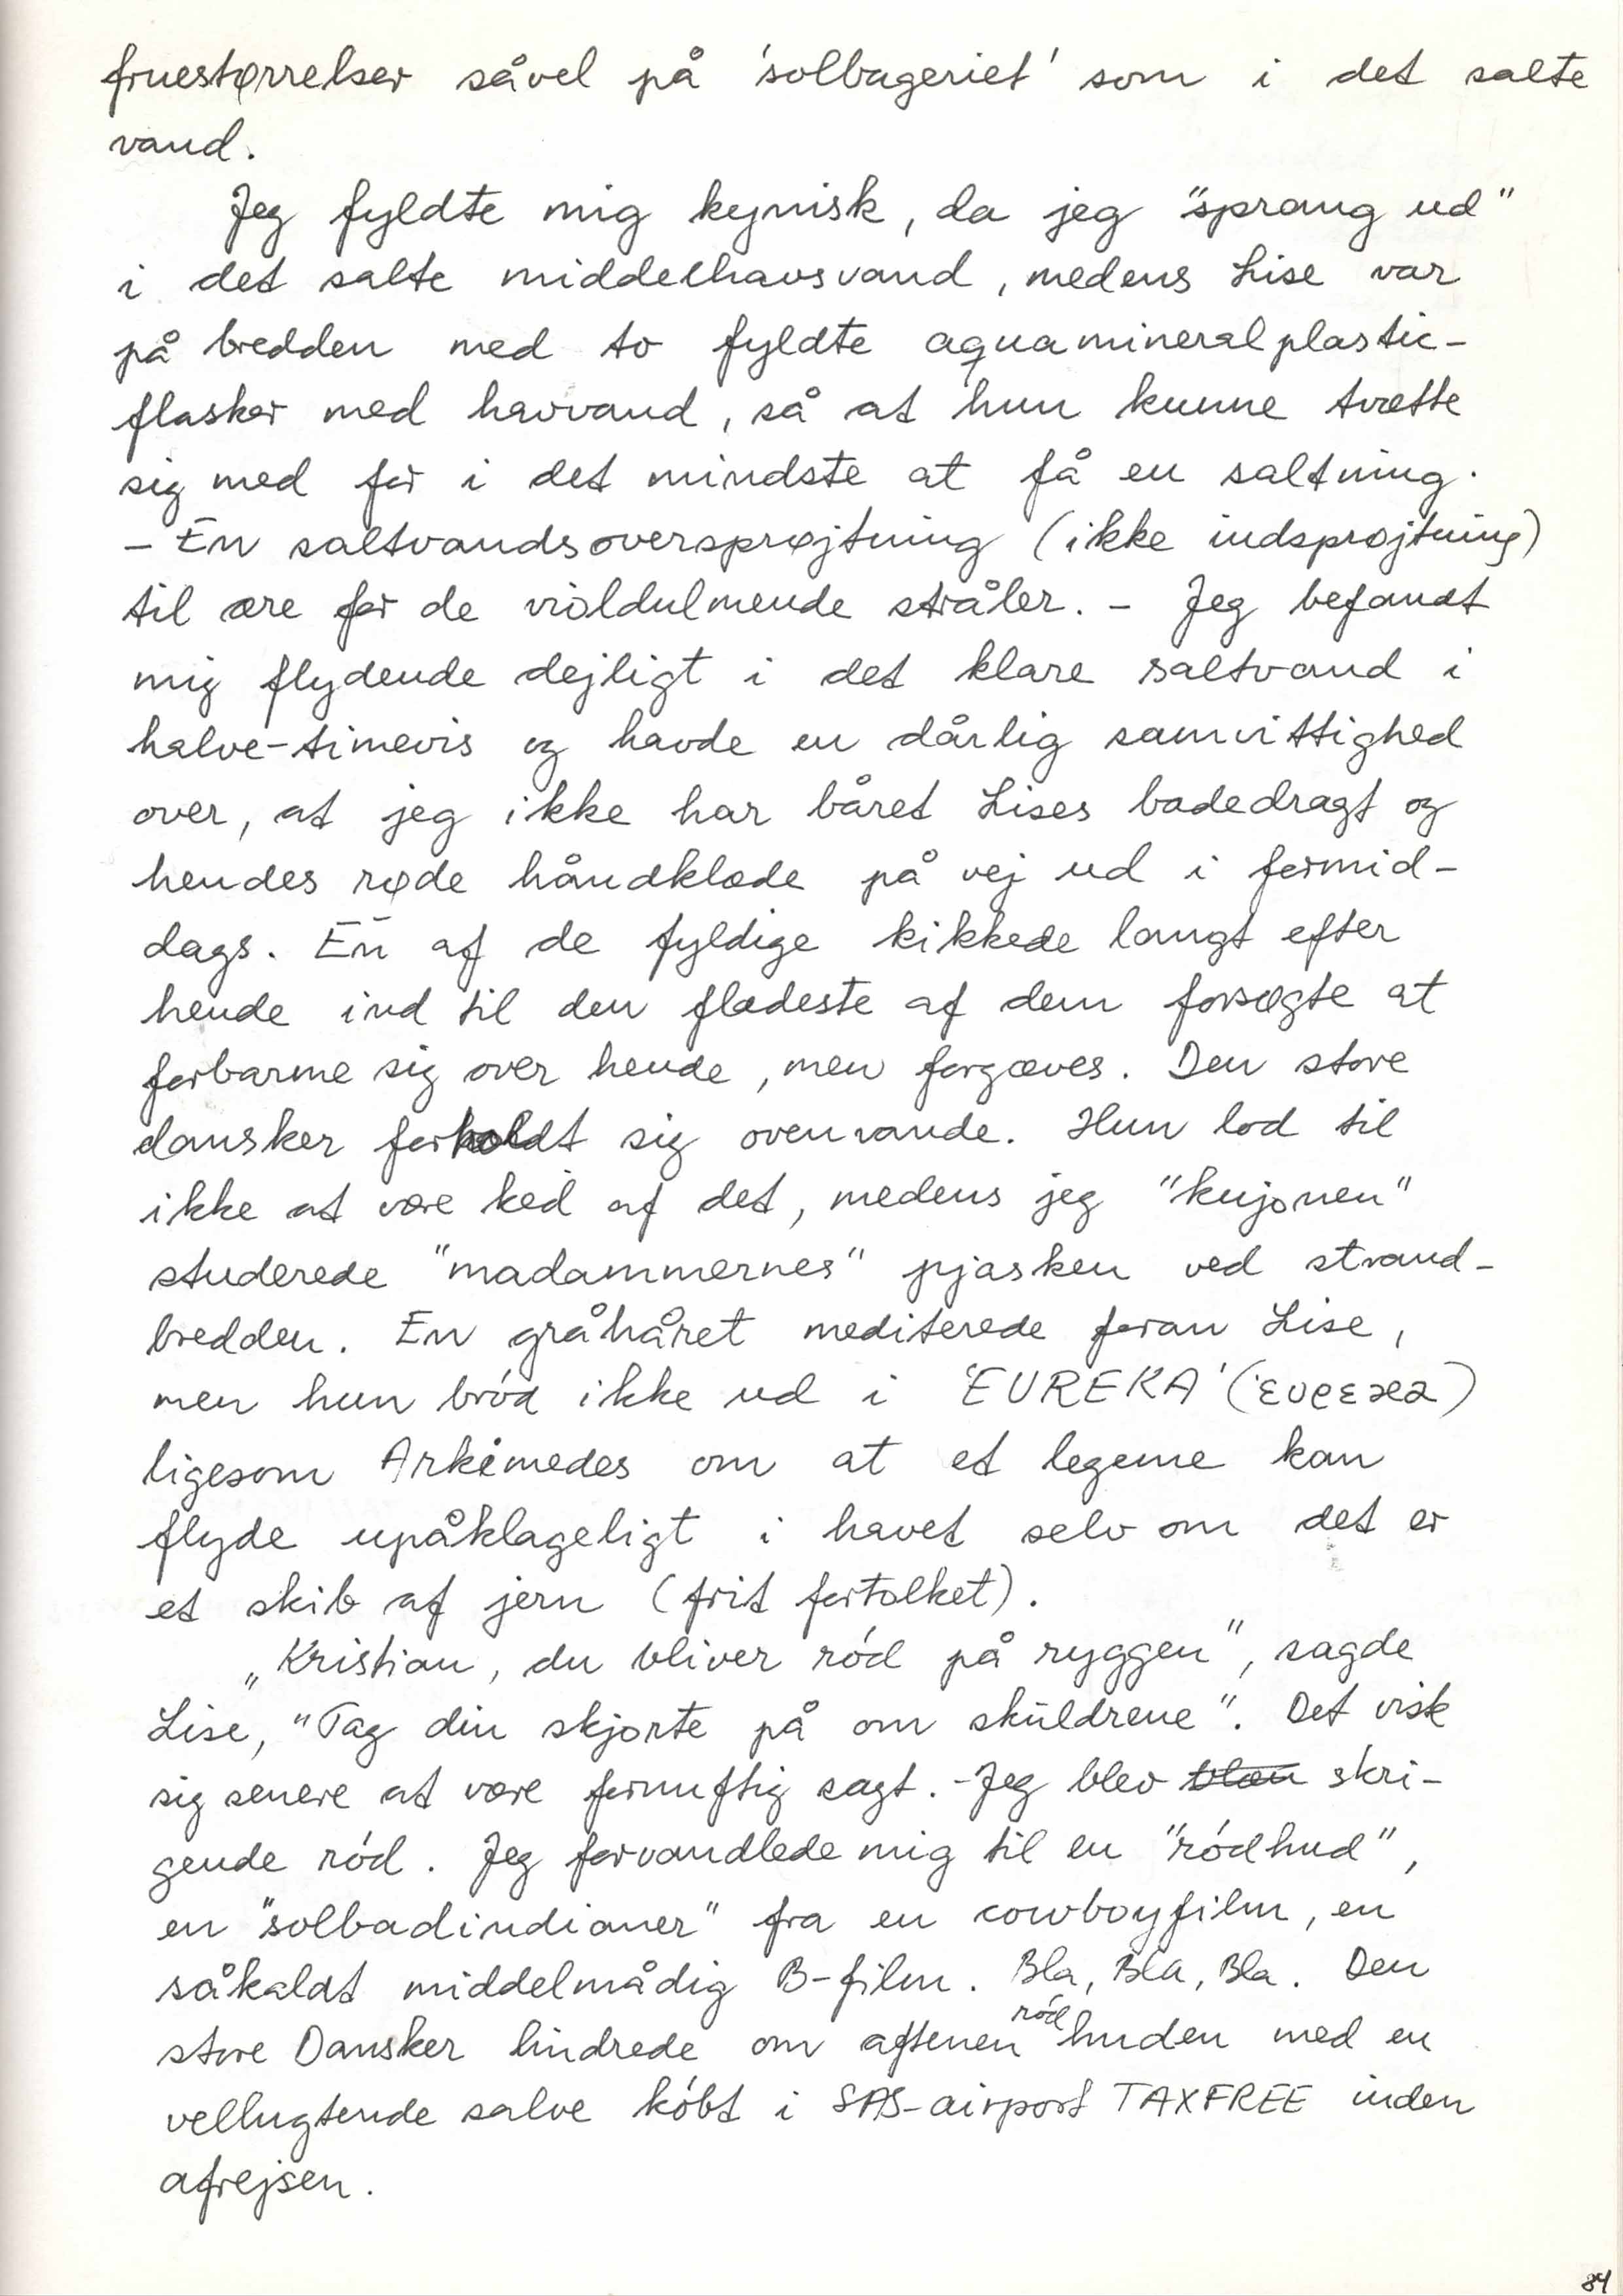 fruestørrelser såvel på 'solbageriet' som i det salte
vand.
Jeg fyldte mig kynisk, da jeg "sprang ud"
i det salte middelhavsvand, medens Lise var
på bredden med to fyldte aquamineralplastic-
flasker med havvand, så at hun kunne tvætte
sig med for i det mindste at få en saltning.
- En saltvandsoversprøjtning (ikke indsprøjtning)
til ære for de violdulmende stråler. - Jeg befandt
mig flydende dejligt i det klare saltvand i
halve-timevis og havde en dårlig samvittighed
over, at jeg ikke har båret Lises badedragt og
hendes røde håndklæde på vej ud i formid-
dags. En af de fyldige kikkede langt efter
hende ind til den flædeste af dem forsøgte at
forbarme sig over hende, men forgæves. Den store
dansker forholdt sig ovenvande. Hun lod til
ikke at være ked af det, medens jeg "kujonen"
studerede "madammernes" pjasken ved strand-
bredden. En gråhåret mediterede foran Lise,
men hun bród ikke ud i 'EUREKA' ('ευρεκα)
ligesom Arkimedes om at et legeme kan
flyde upåklageligt i havet selv om det er
et skib af jern (frit fortolket).
„Kristian, du bliver ród på ryggen", sagde
Lise, "Tag din skjorte på om skuldrene". Det visk
sig senere at være fornuftig sagt. - Jeg blev blæn skri-
gende ród. Jeg forvandlede mig til en "ródhud",
en "solbadindianer" fra en cowboyfilm, en
såkaldt middelmådig B-film. Bla, Bla, Bla. Den
store Dansker lindrede om aftenen ródhuden med en
vellugtende salve kóbt i SAS-airport TAXFREE inden
afrejsen.
84